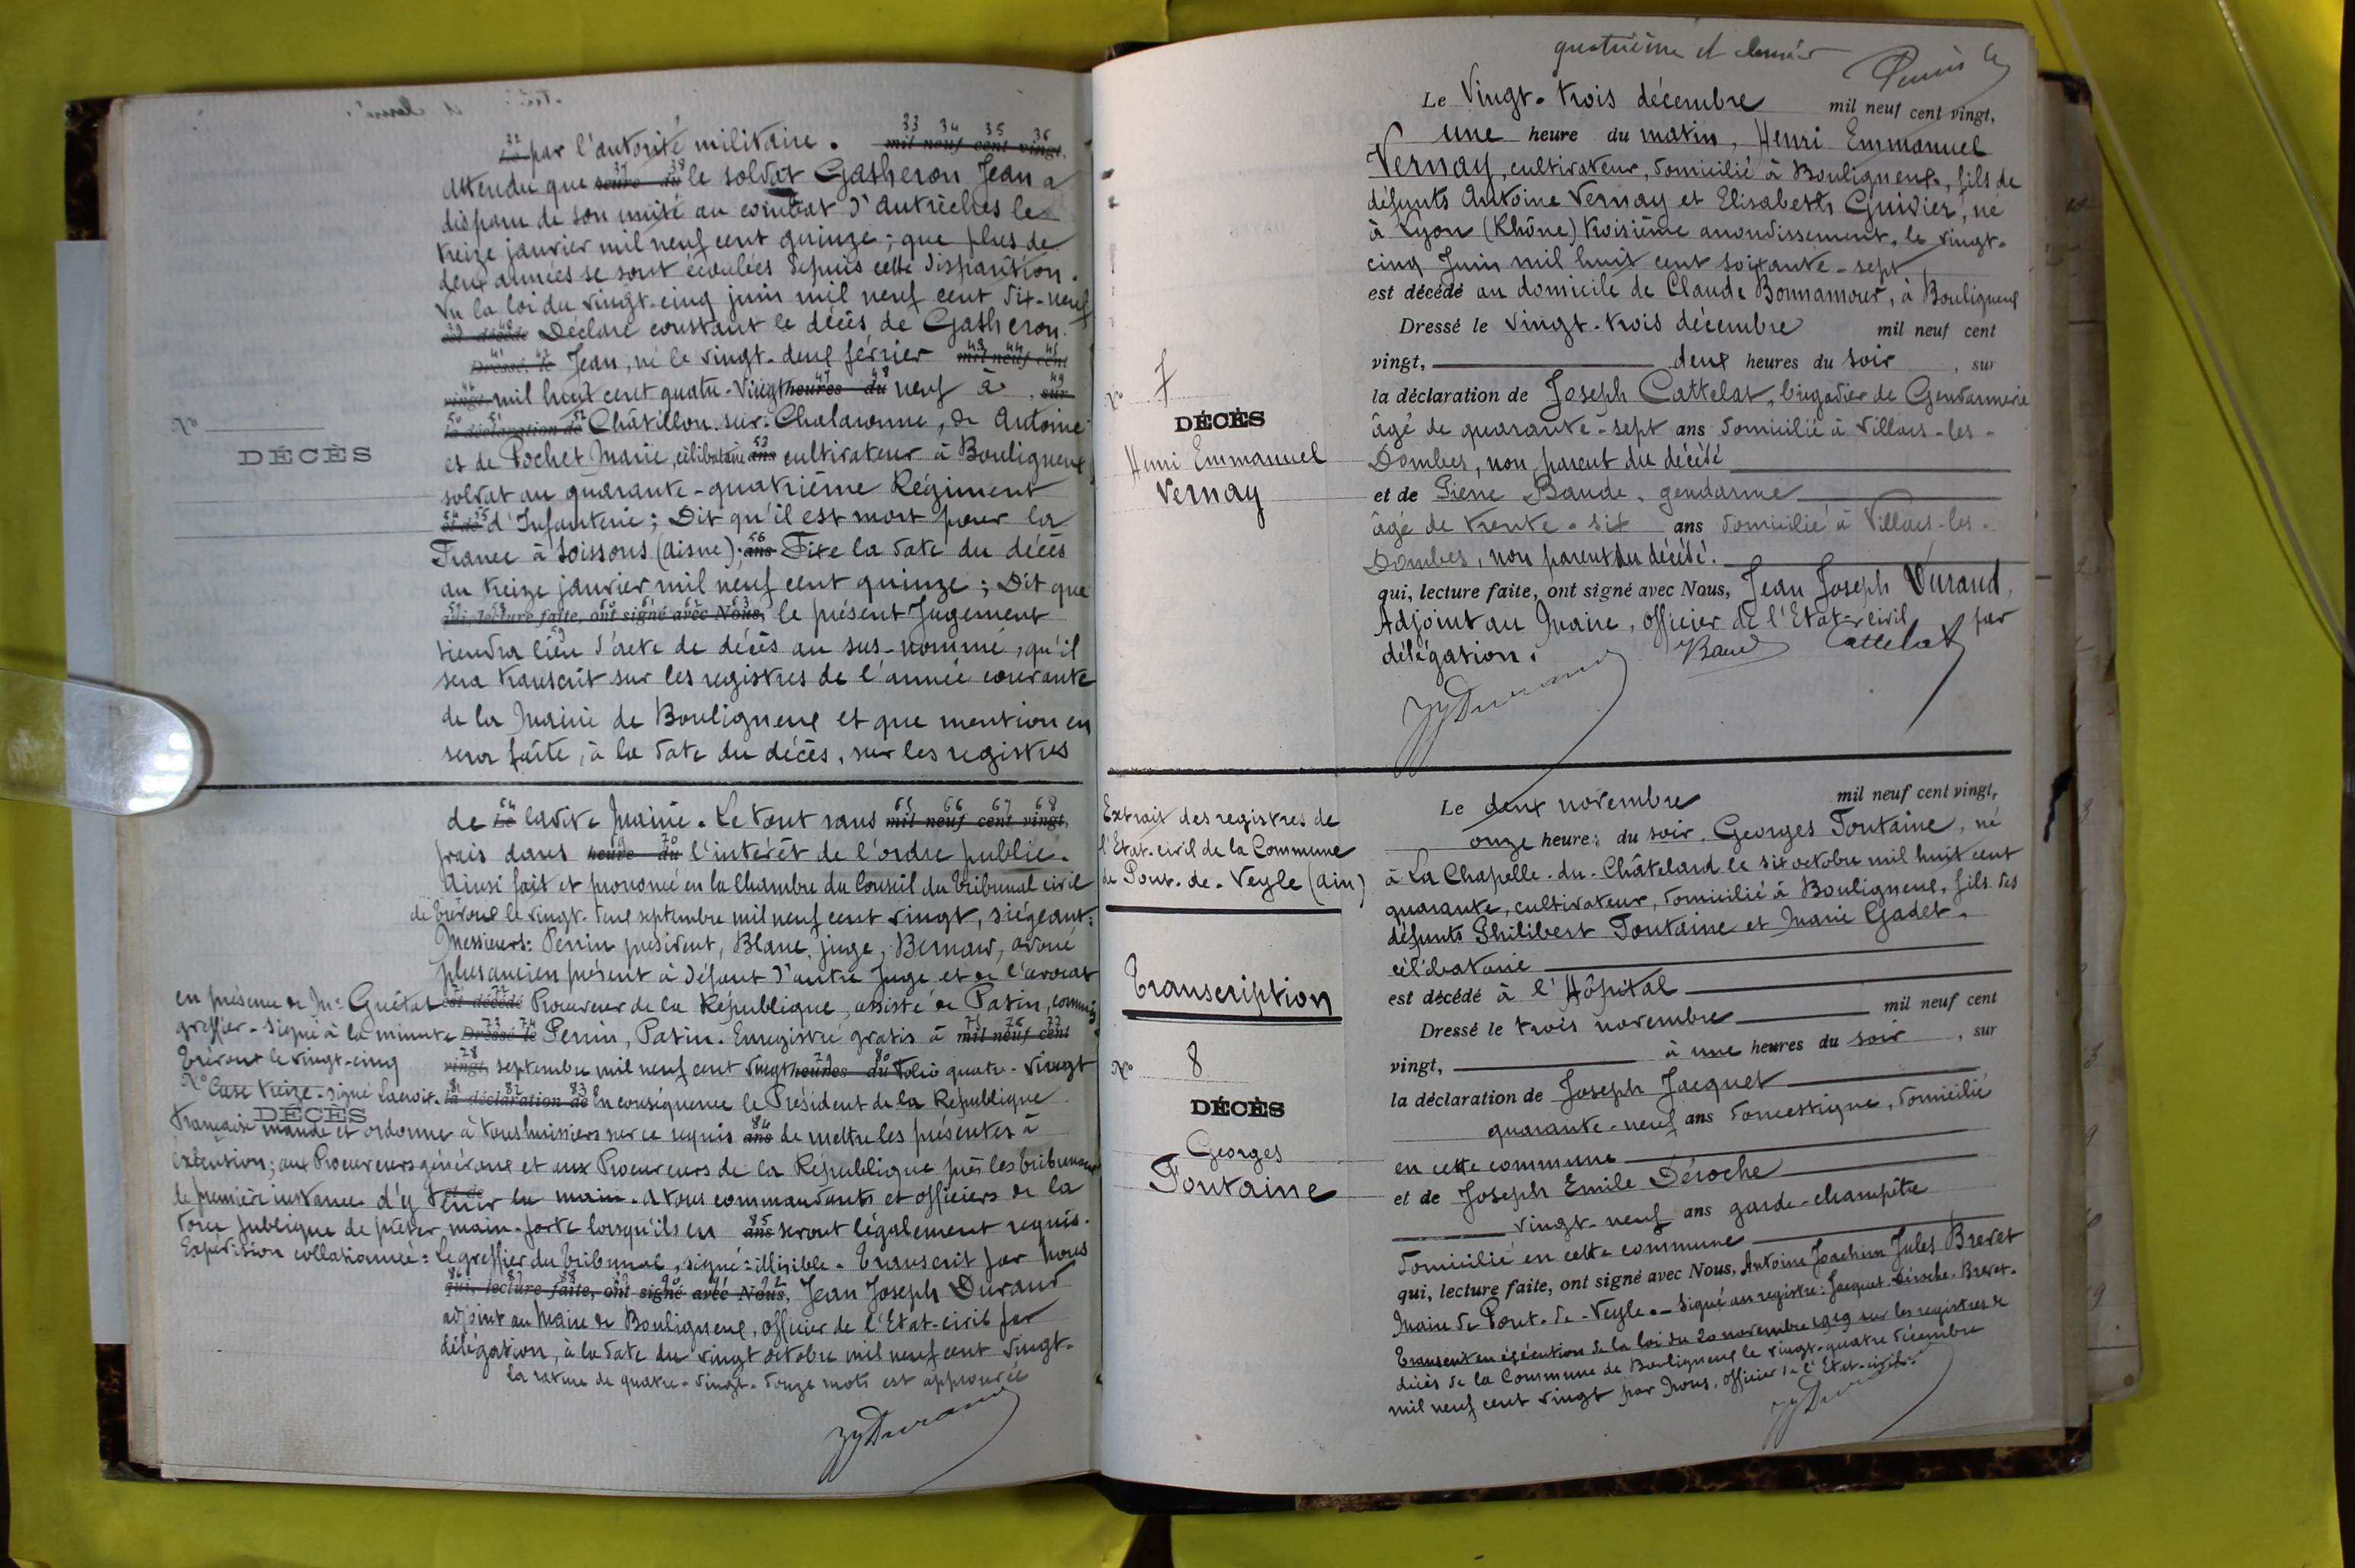 par l'autorité militaire. mil neuf cent vingt,
Attendu que le soldat Gasheron Jean a
disparu de son unité au combat d'Autrèches le
treize janvier mil neuf cent quinze ; que plus de
deux années se sont écoulées depuis cette disparition.
Vu la loi du vingt-cinq juin mil neuf cent dix-neuf
Déclare constant le décès de Gasheron
Dressé le Jean, né le vingt-deux février mil neuf cent
vingt, mil huit cent quatre-vingt heures du neuf à , sur
la déclaration de Châtillon-sur-Chalaronne, de Antoine
et de Pochet Marie, célibataire ans cultivateur à Bouligneux
soldat au quarante-quatrième Régiment
et de d'Infanterie ; Dit qu'il est mort pour la
France à Soissons (Aisne) ; ans Fixe la date du décès
au treize janvier mil neuf cent quinze ; Dit que
qui, lecture faite, ont signé avec Nous, le présent Jugement
tiendra lieu d'acte de décès au sus-nommé, qu'il
sera transcrit sur les registres de l'année courante
de la Mairie de Bouligneux et que mention en
sera faite, à la date du décès, sur les registres
N°
DÉCÈS
de Le ladite Mairie. Le tout sans mil neuf cent vingt,
frais dans heure du l'intérêt de l'ordre public.
Ainsi fait et prononcé en la Chambre du Conseil du Tribunal civil
de Trévoux le vingt-deux septembre mil neuf cent vingt, siégeant :
Messieurs : Perrin président, Blanc, juge, Bernard, avoué
plus ancien présent à défaut d'autre Juge et de l'avocat
en présence de Mr Guétat est décédé Procureur de la République, assisté de Patin, commis
greffier - Signé à la minute Dressé le Perrin, Patin. Enregistré gratis à mil neuf cent
Trévoux le vingt-cinq vingt, septembre mil neuf cent vingt heures du Folio quatre-vingt
N° Case treize - signé Lacroix. la déclaration de En conséquence le Président de la République
DÉCÈS
Française mande et ordonne à tous huissiers sur ce requis ans de mettre les présentes à
exécution ; aux Procureurs généraux et aux Procureurs de la République près les tribunaux
de première instance d'y tenir la main. A tous commandants et officiers de la
force publique de prêter main-forte lorsqu'ils en ans seront légalement requis.
Expédition collationnée : Le greffier du Tribunal, signé : illisible. Transcrit par Nous
qui, lecture faite, ont signé avec Nous, Jean Joseph Durand
adjoint au Maire de Bouligneux, officier de l'Etat-civil par
délégation, à la date du vingt octobre mil neuf cent vingt.
La rature de quatre-vingt-douze mots est approuvée
JJDurand
quatrième et dernier
Le Vingt-trois décembre mil neuf cent vingt,
une heure du matin, Henri Emmanuel
Vernay, cultivateur, domicilié à Bouligneux, fils de
défunts Antoine Vernay et Elisabeth Guidier, né
à Lyon (Rhône) troisième arrondissement, le vingt-
cinq Juin mil huit cent soixante-sept
est décédé au domicile de Claude Bonnamour, à Bouligneux
Dressé le vingt-trois décembre mil neuf cent
vingt, deux heures du soir , sur
la déclaration de Joseph Cattelat, brigadier de Gendarmerie
âgé de quarante-sept ans domicilié à Villars-les-
Dombes, non parent du décédé
et de Pierre Baude, gendarme
âgé de trente-six ans domicilié à Villars-les-
Dombes, non parent du décédé.
qui, lecture faite, ont signé avec Nous, Jean Joseph Durand,
Adjoint au Maire, officier de l'Etat-civil par
délégation.
Baud Cattelat
JJDurand
N° 7
DÉCÈS
Henri Emmanuel
Vernay
Extrait des registres de
l'Etat-civil de la Commune
de Pont-de-Veyle (Ain)
Transcription
N° 8
DÉCÈS
Georges
Fontaine
Le deux novembre mil neuf cent vingt,
onze heures du soir, Georges Fontaine, né
à La Chapelle-du-Châtelard le six octobre mil huit cent
quarante, cultivateur, domicilié à Bouligneux, fils des
défunts Philibert Fontaine et Marie Gadet,
célibataire
est décédé à l'Hôpital
Dressé le trois novembre mil neuf cent
vingt, à une heures du soir , sur
la déclaration de Joseph Jacquet
quarante-neuf ans domestique, domicilié
en cette commune
et de Joseph Emile Déroche
vingt-neuf ans garde-champêtre
domicilié en cette commune
qui, lecture faite, ont signé avec Nous, Antoine Joachim Jules Brevet
Maire de Pont-de-Veyle. - Signé au registre : Jacquet. Déroche. Brevet.
Transcrit en exécution de la loi du 20 novembre 1919 sur les registres de
décès de la Commune de Bouligneux le vingt-quatre décembre
mil neuf cent vingt par Nous, officier de l'Etat-civil.
JJDurand